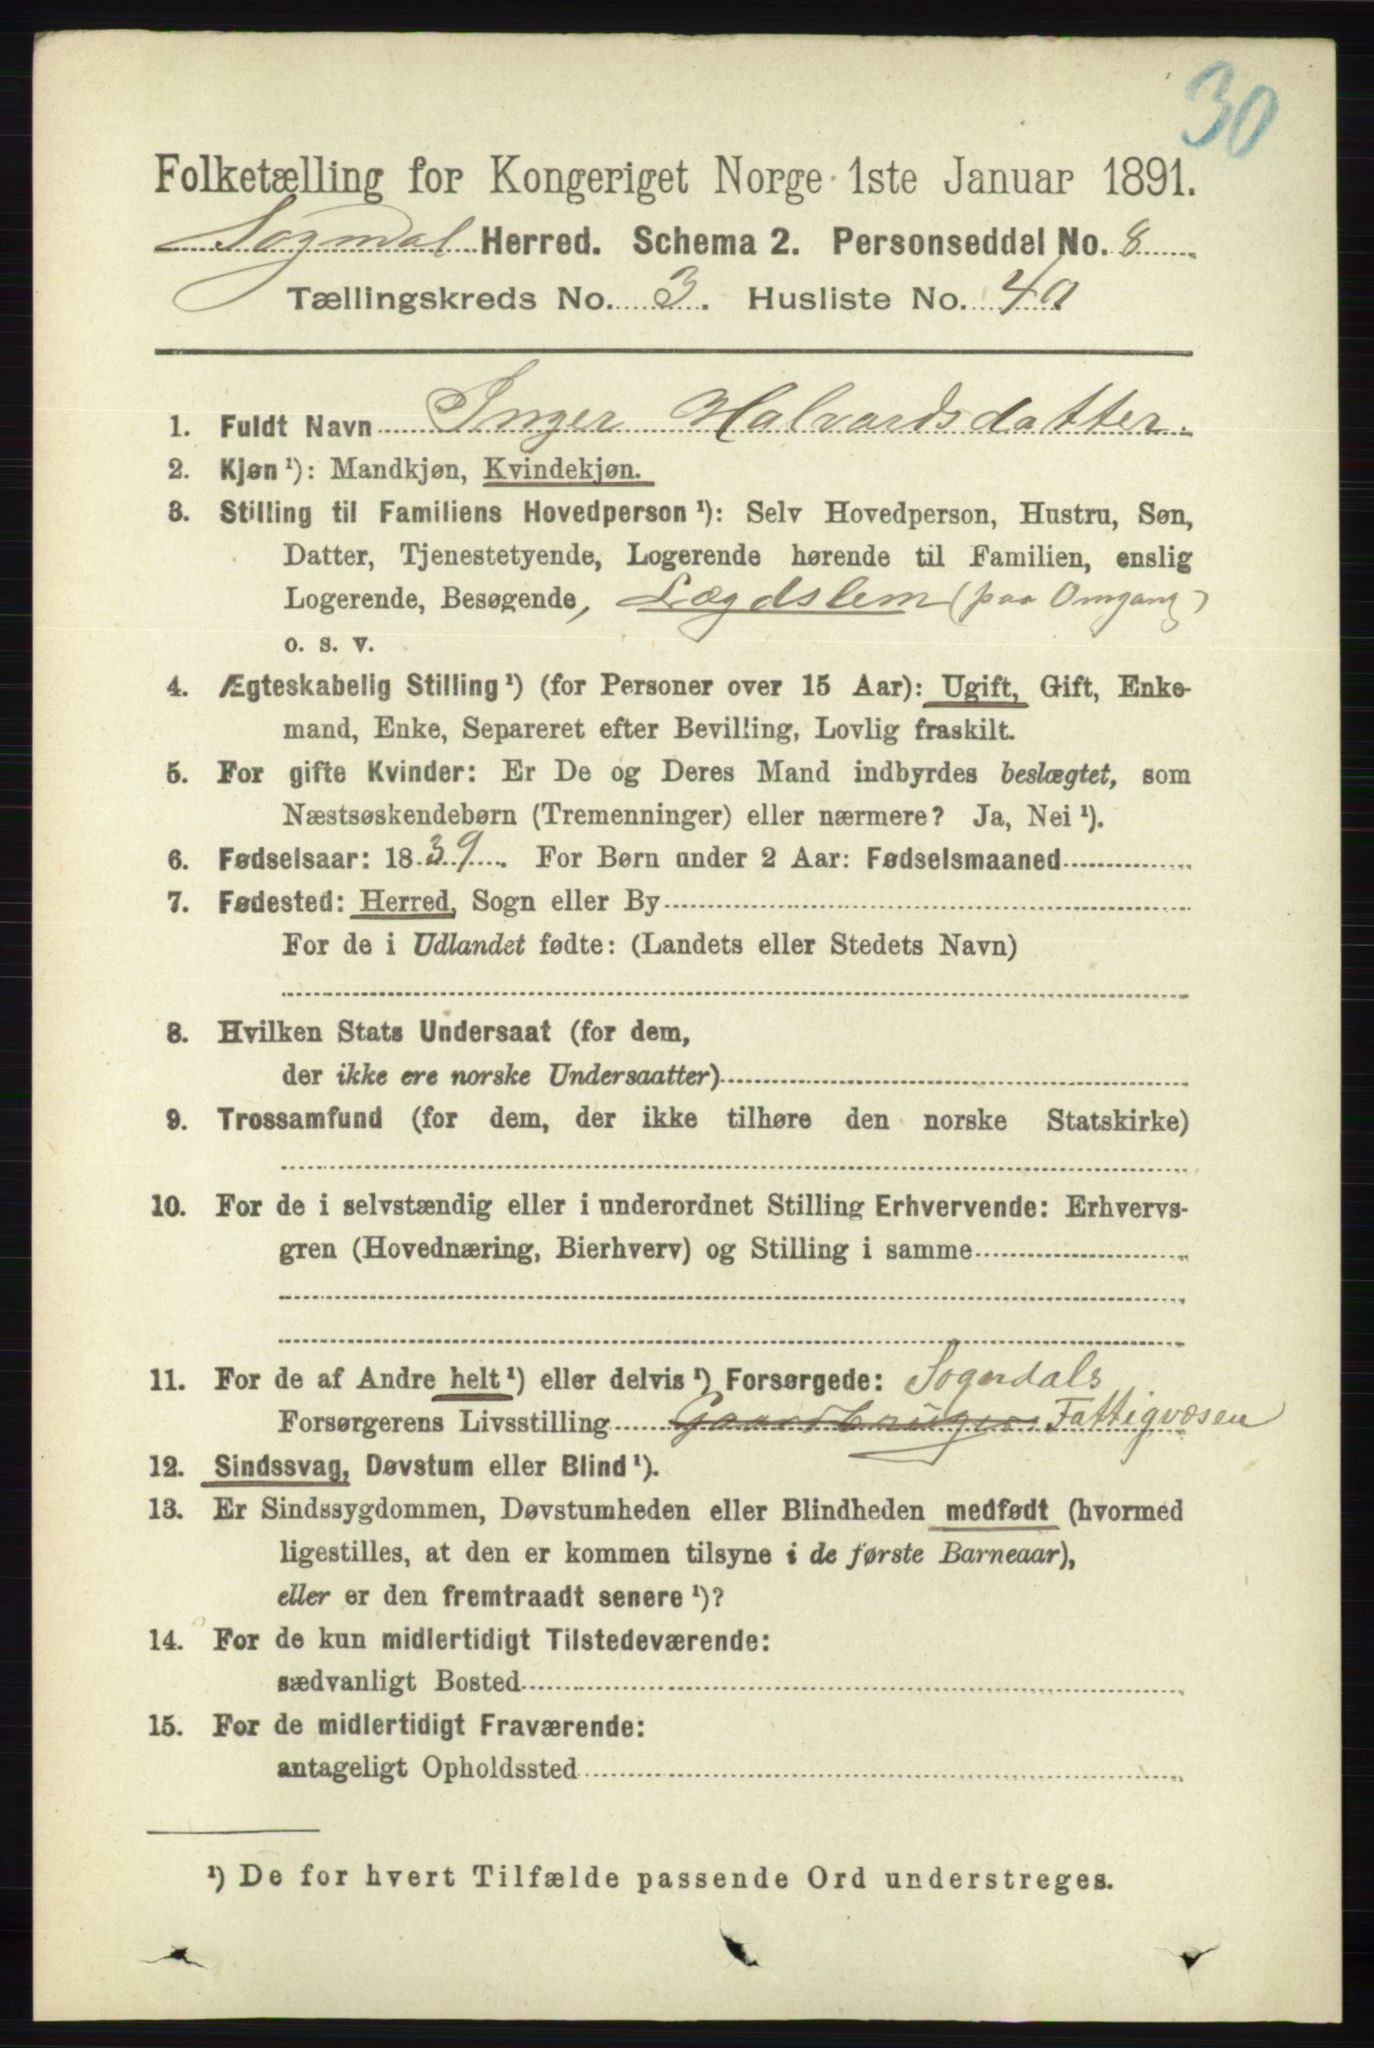 30
Folketælling for Kongeriget Norge 1ste Januar 1891.
Sogndal Herred. Schema 2. Personseddel No. 8
Tællingskreds No. 3. Husliste No. 40
1. Fuldt Navn Inger Halvardsdatter.
2. Kjøn ¹): Mandkjøn, Kvindekjøn.
3. Stilling til Familiens Hovedperson ¹): Selv Hovedperson, Hustru, Søn,
Datter, Tjenestetyende, Logerende hørende til Familien, enslig
Logerende, Besøgende, Lægdslem (paa Omgang)
o. s. v.
4. Ægteskabelig Stilling ¹) (for Personer over 15 Aar): Ugift, Gift, Enke-
mand, Enke, Separeret efter Bevilling, Lovlig fraskilt.
5. For gifte Kvinder: Er De og Deres Mand indbyrdes beslægtet, som
Næstsøskendebørn (Tremenninger) eller nærmere? Ja, Nei ¹).
6. Fødselsaar: 1839. For Børn under 2 Aar: Fødselsmaaned
7. Fødested: Herred, Sogn eller By
For de i Udlandet fødte: (Landets eller Stedets Navn)
8. Hvilken Stats Undersaat (for dem,
der ikke ere norske Undersaatter)
9. Trossamfund (for dem, der ikke tilhøre den norske Statskirke)
10. For de i selvstændig eller i underordnet Stilling Erhvervende: Erhvervs-
gren (Hovednæring, Bierhverv) og Stilling i samme
11. For de af Andre helt ¹) eller delvis ¹) Forsørgede: Sogndals
Forsørgerens Livsstilling Gaardbruger Fattigvæsen
12. Sindssvag, Døvstum eller Blind ¹).
13. Er Sindssygdommen, Døvstumheden eller Blindheden medfødt (hvormed
ligestilles, at den er kommen tilsyne i de første Barneaar),
eller er den fremtraadt senere ¹)?
14. For de kun midlertidigt Tilstedeværende:
sædvanligt Bosted
15. For de midlertidigt Fraværende:
antageligt Opholdssted
¹) De for hvert Tilfælde passende Ord understreges.